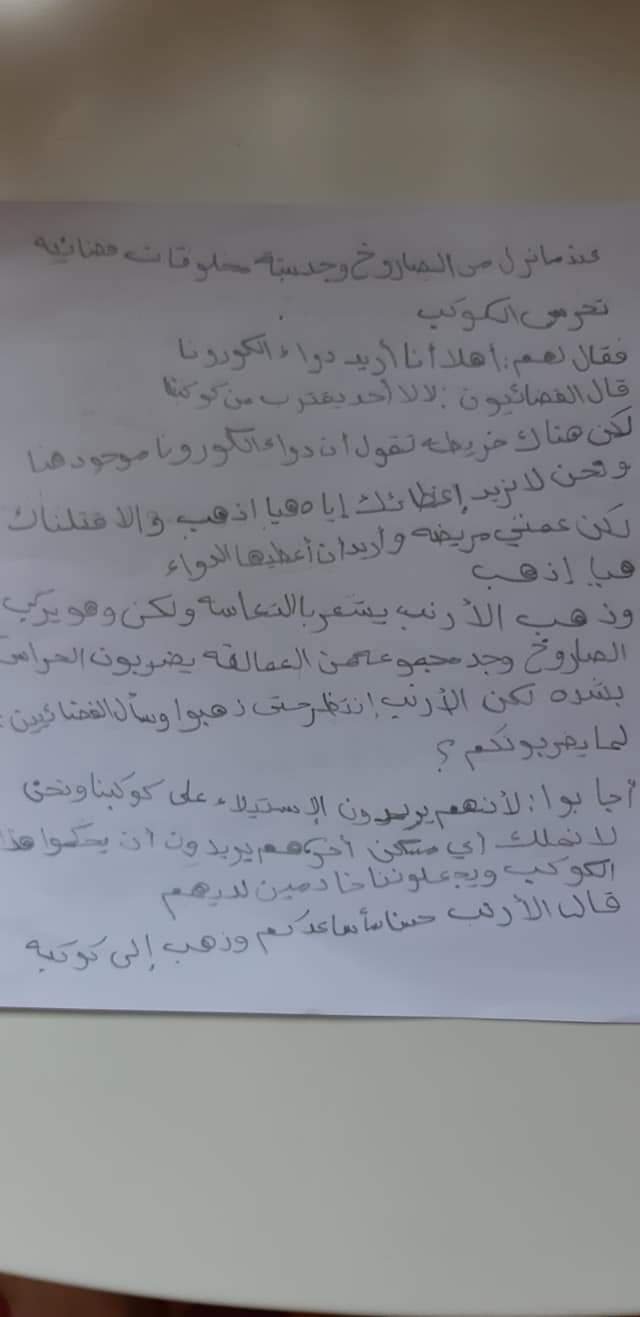 عندما نزل من الصاروخ وجد ستة مخلوقات فضائيه
تحرس الكوكب
فقال لهم: أهلا أنا أريد دواء الكورونا
قال الفضائيون: لا لا أحد يقترب من كوكبنا
لكن هناك خريطه تقول ان دواء الكورونا موجود هنا
ونحن لا نريد إعطائك إياه هيا اذهب وإلا قتلناك
لكن عمتي مريضه وأريد ان أعطيها الدواء
هيا إذهب
وذهب الأرنب يشعر بالتعاسه ولكن وهو يركب
الصاروخ وجد مجموعه من العمالقه يضربون الحراس
بشده لكن الأرنب إنتظر حتى ذهبوا وسأل الفضائيين:
لما يضربونكم؟
أجابوا: لأنهم يريدون الإستيلاء على كوكبنا ونحن
لا نملك أي مسكن أخر هم يريدون أن يحكموا هذا
الكوكب ويجعلوننا خادمين لديهم
قال الأرنب حسنا سأساعدكم وذهب إلى كوكبه